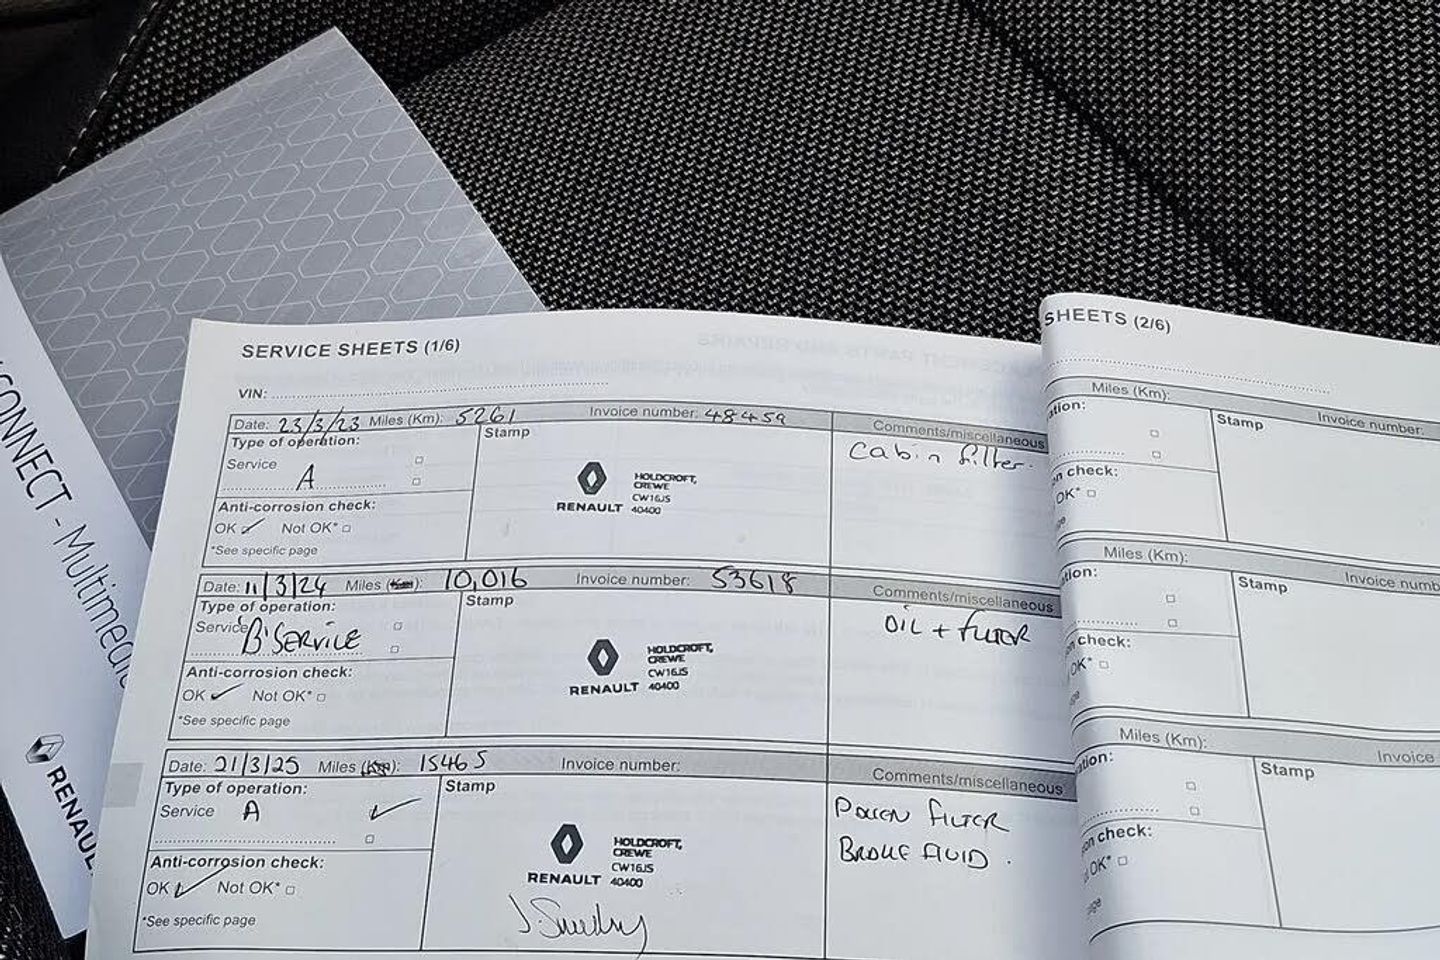 CONNECT - Multimedia
RENAULT
SERVICE SHEETS (1/6)
VIN:
Date: 23/3/23 Miles (Km): 5261 Invoice number: 48459
Comments/miscellaneous
Type of operation:
Stamp
Cabin filter.
Service
A
HOLDCROFT,
CREWE
CW16JS
RENAULT 40400
Anti-corrosion check:
OK Not OK*
*See specific page
Date: 11/3/24 Miles (Km): 10,016 Invoice number: 53618
Comments/miscellaneous
Type of operation:
Stamp
OIL + FILTER
Service 'B' SERVICE
HOLDCROFT,
CREWE
CW16JS
RENAULT 40400
Anti-corrosion check:
OK Not OK*
*See specific page
Date: 21/3/25 Miles (Km): 15465 Invoice number:
Comments/miscellaneous
Type of operation:
Stamp
Service A
POLLEN FILTER
BRAKE FLUID.
HOLDCROFT,
CREWE
CW16JS
RENAULT 40400
Anti-corrosion check:
OK Not OK*
*See specific page
SHEETS (2/6)
Miles (Km): Invoice number:
ation:
Stamp
on check:
OK*
Miles (Km): Invoice numb
ation:
Stamp
check:
OK*
Miles (Km): Invoice
ation:
Stamp
on check:
OK*